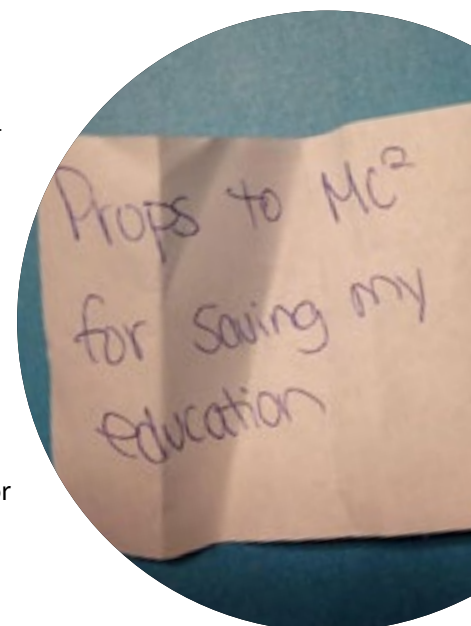 Props to MC²
for saving my
education
or